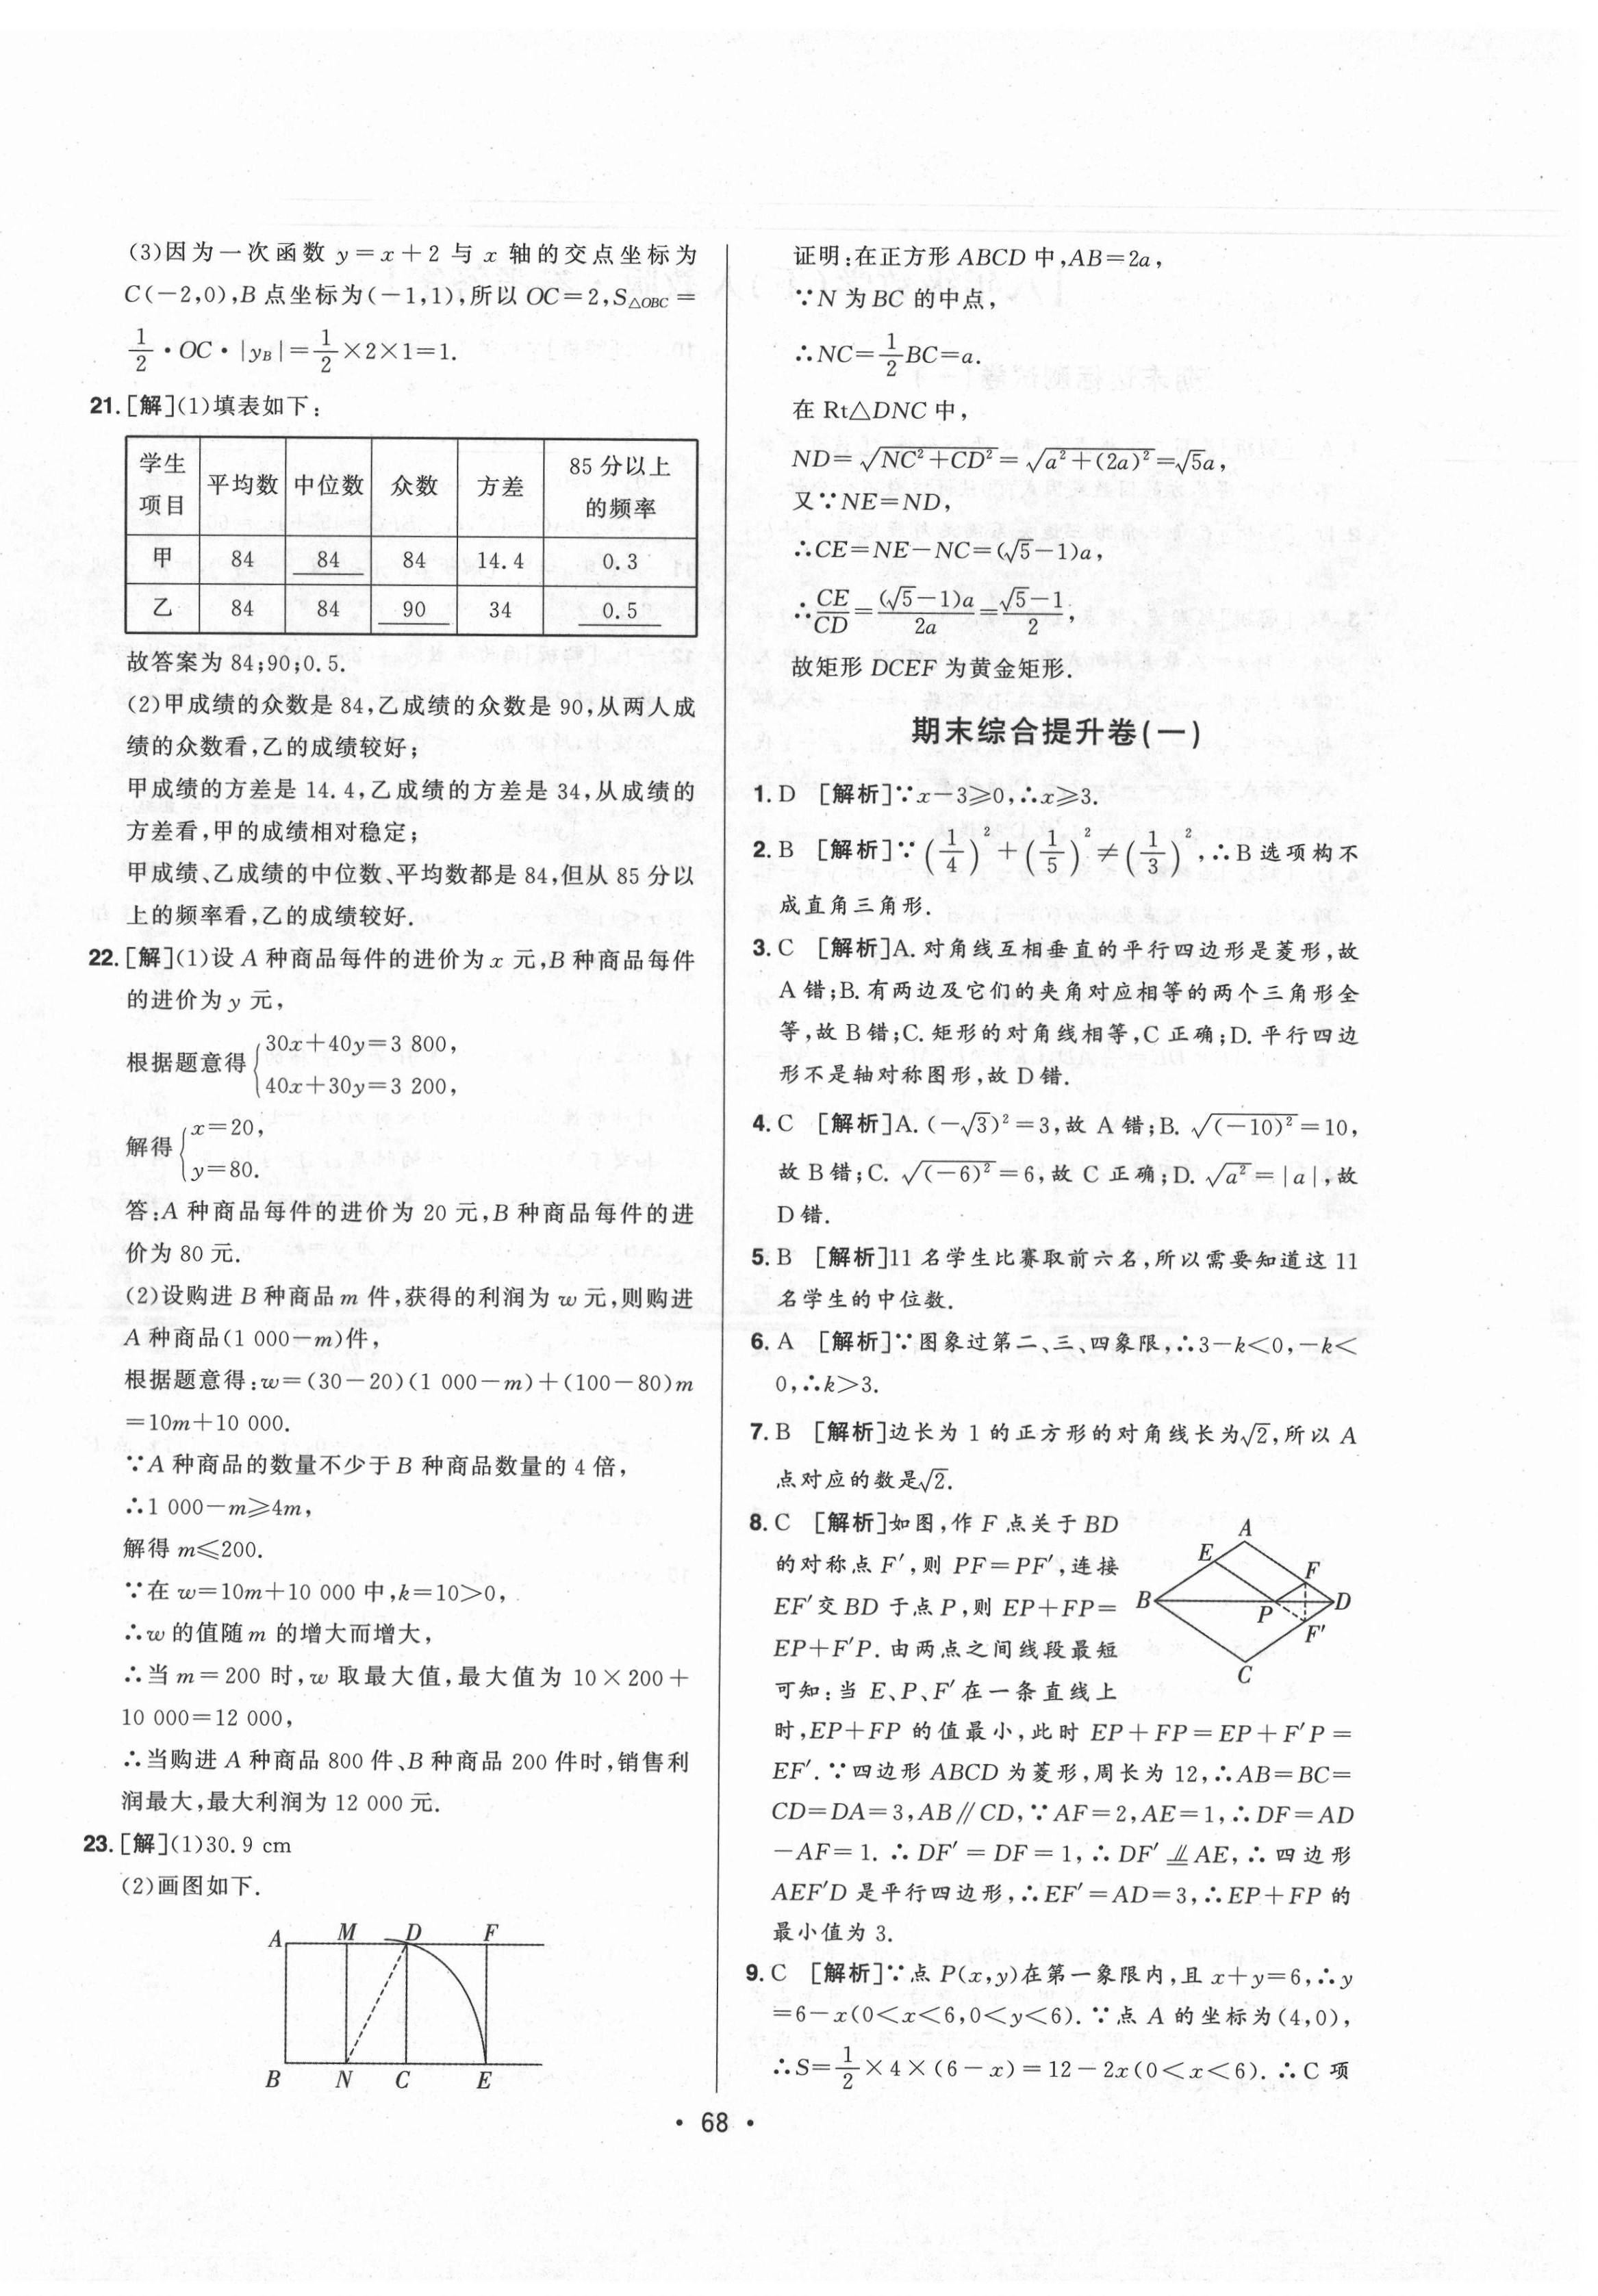 (3)因为一次函数 y=x+2 与 x 轴的交点坐标为
C(-2,0),B 点坐标为(-1,1),所以 OC=2,S△OBC=
1/2·OC·|yB|=1/2×2×1=1.
21.[解](1)填表如下:
学生 项目 平均数 中位数 众数 方差 85 分以上的频率
甲 84 84 84 14.4 0.3
乙 84 84 90 34 0.5
故答案为 84;90;0.5.
(2)甲成绩的众数是 84,乙成绩的众数是 90,从两人成
绩的众数看,乙的成绩较好;
甲成绩的方差是 14.4,乙成绩的方差是 34,从成绩的
方差看,甲的成绩相对稳定;
甲成绩、乙成绩的中位数、平均数都是 84,但从 85 分以
上的频率看,乙的成绩较好.
22.[解](1)设 A 种商品每件的进价为 x 元,B 种商品每件
的进价为 y 元,
根据题意得{30x+40y=3 800,
40x+30y=3 200,
解得{x=20,
y=80.
答:A 种商品每件的进价为 20 元,B 种商品每件的进
价为 80 元.
(2)设购进 B 种商品 m 件,获得的利润为 w 元,则购进
A 种商品(1 000-m)件,
根据题意得:w=(30-20)(1 000-m)+(100-80)m
=10m+10 000.
∵A 种商品的数量不少于 B 种商品数量的 4 倍,
∴1 000-m≥4m,
解得 m≤200.
∵在 w=10m+10 000 中,k=10>0,
∴w 的值随 m 的增大而增大,
∴当 m=200 时,w 取最大值,最大值为 10×200+
10 000=12 000,
∴当购进 A 种商品 800 件、B 种商品 200 件时,销售利
润最大,最大利润为 12 000 元.
23.[解](1)30.9 cm
(2)画图如下.
A M D F
B N C E
证明:在正方形 ABCD 中,AB=2a,
∵N 为 BC 的中点,
∴NC=1/2BC=a.
在 Rt△DNC 中,
ND=√(NC²+CD²)=√(a²+(2a)²)=√5a,
又∵NE=ND,
∴CE=NE-NC=(√5-1)a,
∴CE/CD=(√5-1)a/2a=(√5-1)/2,
故矩形 DCEF 为黄金矩形.
期末综合提升卷(一)
1. D [解析]∵x-3≥0,∴x≥3.
2. B [解析]∵(1/4)²+(1/5)²≠(1/3)²,∴B 选项构不
成直角三角形.
3. C [解析]A. 对角线互相垂直的平行四边形是菱形,故
A 错;B. 有两边及它们的夹角对应相等的两个三角形全
等,故 B 错;C. 矩形的对角线相等,C 正确;D. 平行四边
形不是轴对称图形,故 D 错.
4. C [解析]A. (-√3)²=3,故 A 错;B. √(-10)²=10,
故 B 错;C. √(-6)²=6,故 C 正确;D. √a²=|a|,故
D 错.
5. B [解析]11 名学生比赛取前六名,所以需要知道这 11
名学生的中位数.
6. A [解析]∵图象过第二、三、四象限,∴3-k<0,-k<
0,∴k>3.
7. B [解析]边长为 1 的正方形的对角线长为√2,所以 A
点对应的数是√2.
8. C [解析]如图,作 F 点关于 BD
的对称点 F′,则 PF=PF′,连接
EF′交 BD 于点 P,则 EP+FP=
EP+F′P. 由两点之间线段最短
可知:当 E、P、F′在一条直线上
A
E F
B P D
F′
C
时,EP+FP 的值最小,此时 EP+FP=EP+F′P=
EF′. ∵四边形 ABCD 为菱形,周长为 12,∴AB=BC=
CD=DA=3,AB∥CD,∵AF=2,AE=1,∴DF=AD
-AF=1. ∴DF′=DF=1,∴DF′⥤AE,∴四边形
AEF′D 是平行四边形,∴EF′=AD=3,∴EP+FP 的
最小值为 3.
9. C [解析]∵点 P(x,y)在第一象限内,且 x+y=6,∴y
=6-x(0<x<6,0<y<6). ∵点 A 的坐标为(4,0),
∴S=1/2×4×(6-x)=12-2x(0<x<6). ∴C 项
·68·